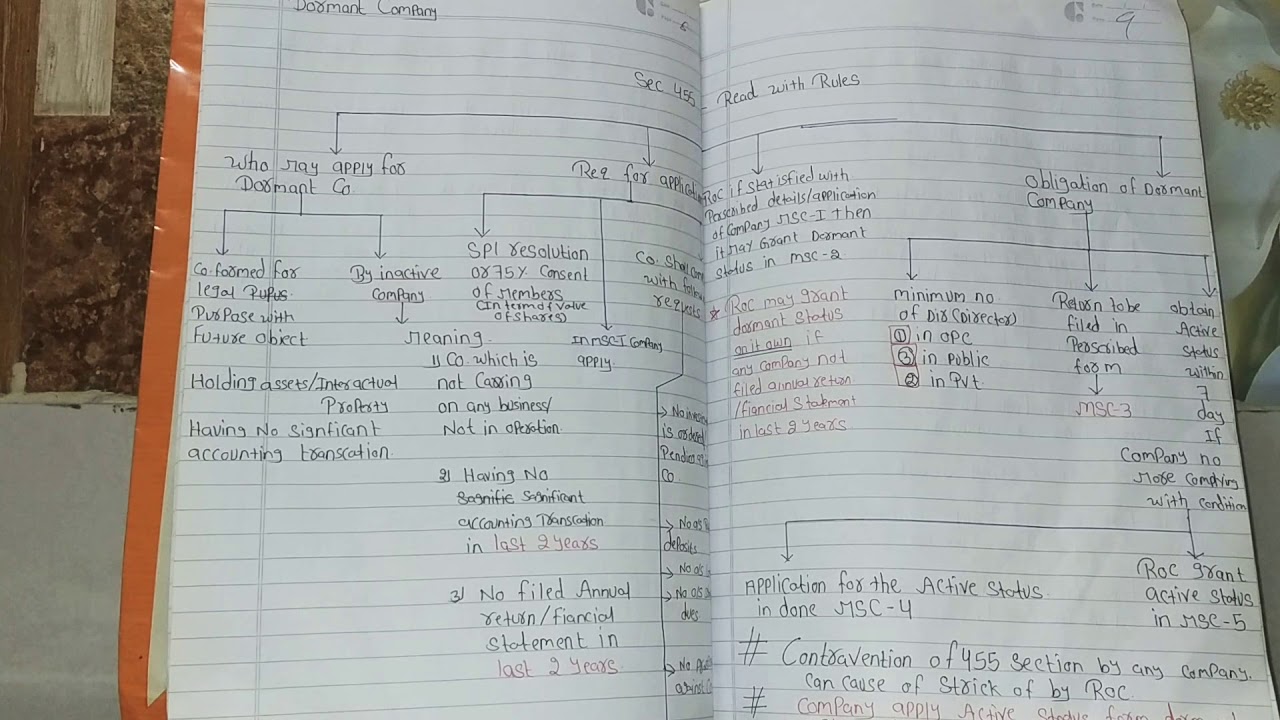 Dormant Company
Sec 455
Who May apply for
Dormant Co
Co formed for
legal Pupus
Purpose with
Future object
Holding assets/Interactual
Property
Having No Signficant
accounting transcation.
By inactive
Company
Meaning.
1) Co. which is
not Carring
on any business/
Not in operation.
2) Having No
Sagnific Sagnificant
accounting Transcation
in last 2 years
3) No filed Annual
return/fiancial
statement in
last 2 years.
Req for
SPl resolution
or 75% Consent
of Members
(In term of value
of shares)
In MSC I Company
apply.
Co.
with
requests
→ No
is ordered
Pending
Co
→ No
deposits
→ No
→ No
dues
→ No
against
9
Read with Rules
Roc if statisfied with
Perscribed details/application
of Company MSC-I then
it May Grant Dormant
status in msc-2
* Roc may grant
dormant Status
on it own if
any company not
filed annual return
/fiancial Statement
in last 2 years
Obligation of Dormant
Company
minimum no.
of Dir (Director)
① in OPC
③ in Public
② in Pvt
Return to be
filed in
Perscribed
form
MSC-3
obtain
Active
Status
within
7
day
If
Company no
More Complying
with condition
Application for the Active Status.
in done MSC-4
Roc grant
active status
in MSC-5
# Contravention of 455 Section by any company.
can cause of Strick of by Roc.
# Company apply Active Status form